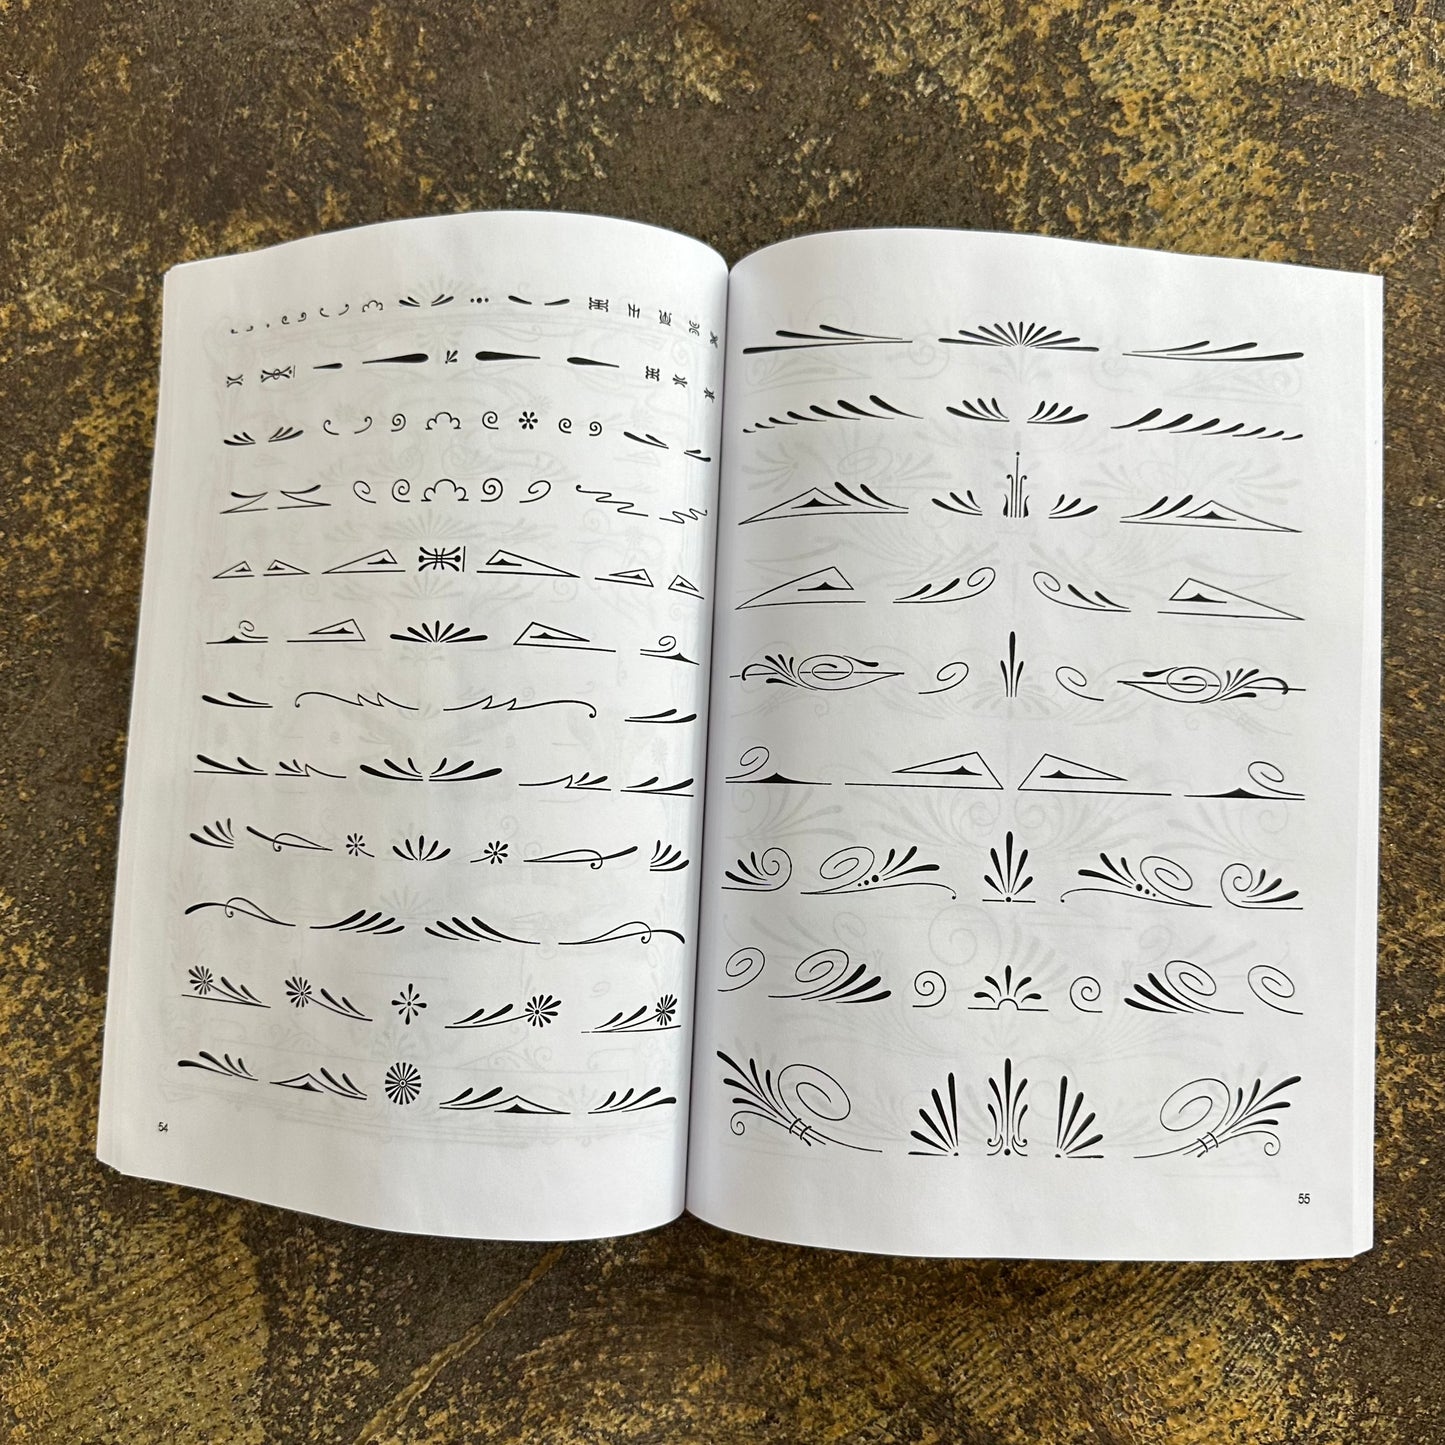 54
55